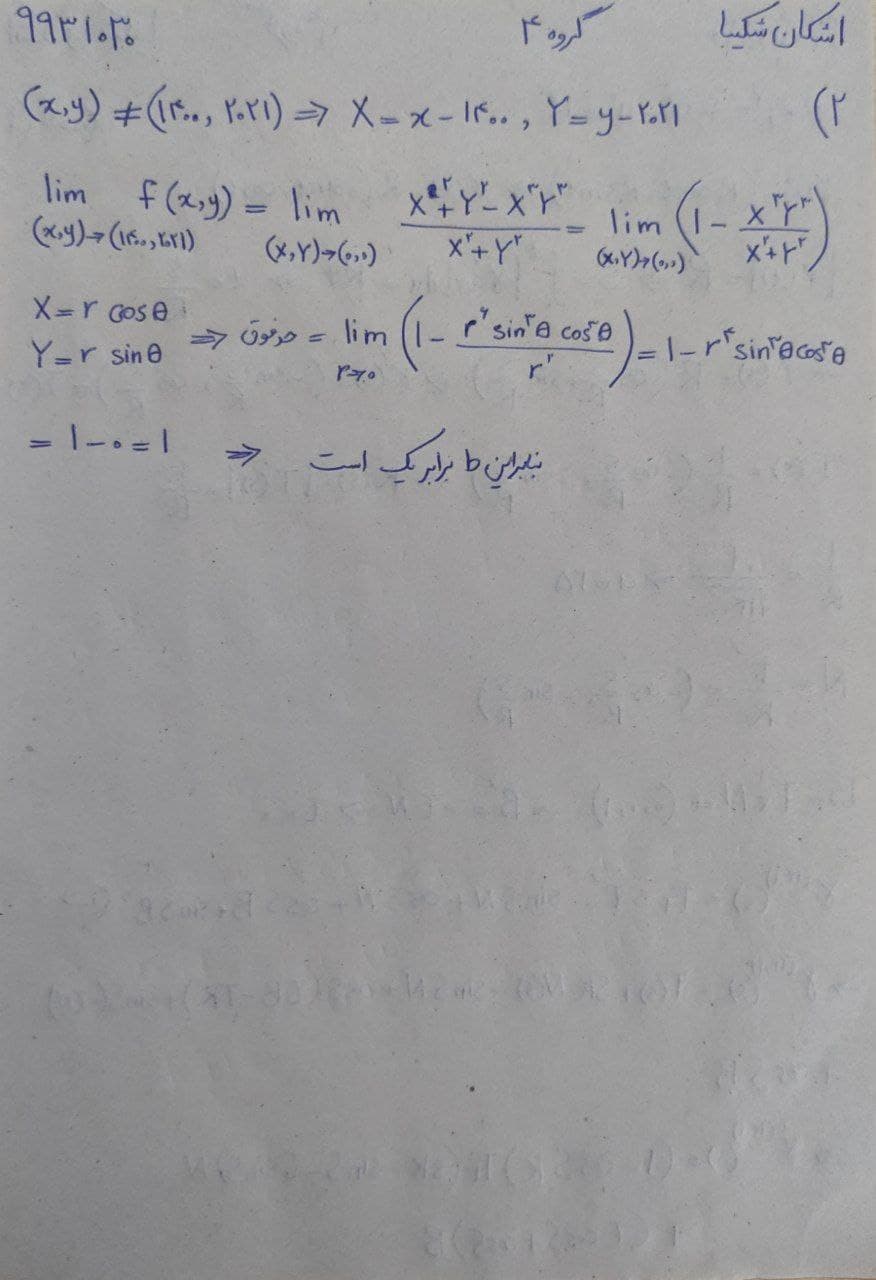 اشکان شکیبا گروه ۴ ۹۹۳۱۰۳۰
۲) (x,y) ≠ (۱۴۰۰, ۲۰۲۱) ⇒ X = x - ۱۴۰۰ , Y = y - ۲۰۲۱
lim_{(x,y)→(۱۴۰۰,۲۰۲۱)} f(x,y) = lim_{(X,Y)→(۰,۰)} (X^۲ + Y^۲ - X^۳Y^۳)/(X^۲ + Y^۲) = lim_{(X,Y)→(۰,۰)} (۱ - X^۳Y^۳/(X^۲ + Y^۲))
X = r cosθ
Y = r sinθ ⇒ حد فوق = lim_{r→۰} (۱ - r^۶ sin^۳θ cos^۳θ / r^۲) = ۱ - r^۴ sin^۳θ cos^۳θ
= ۱ - ۰ = ۱ ⇒ بنابراین b برابر یک است